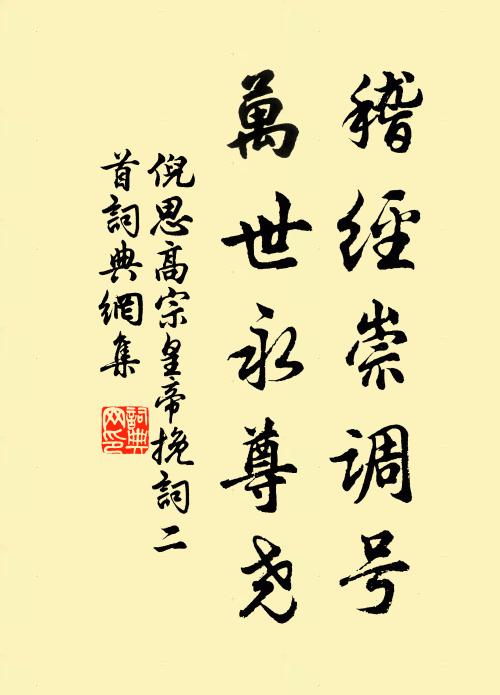 稽經崇调号
萬世永尊尧
倪思高宗皇帝挽詞二
首詞典網集
詞典网印